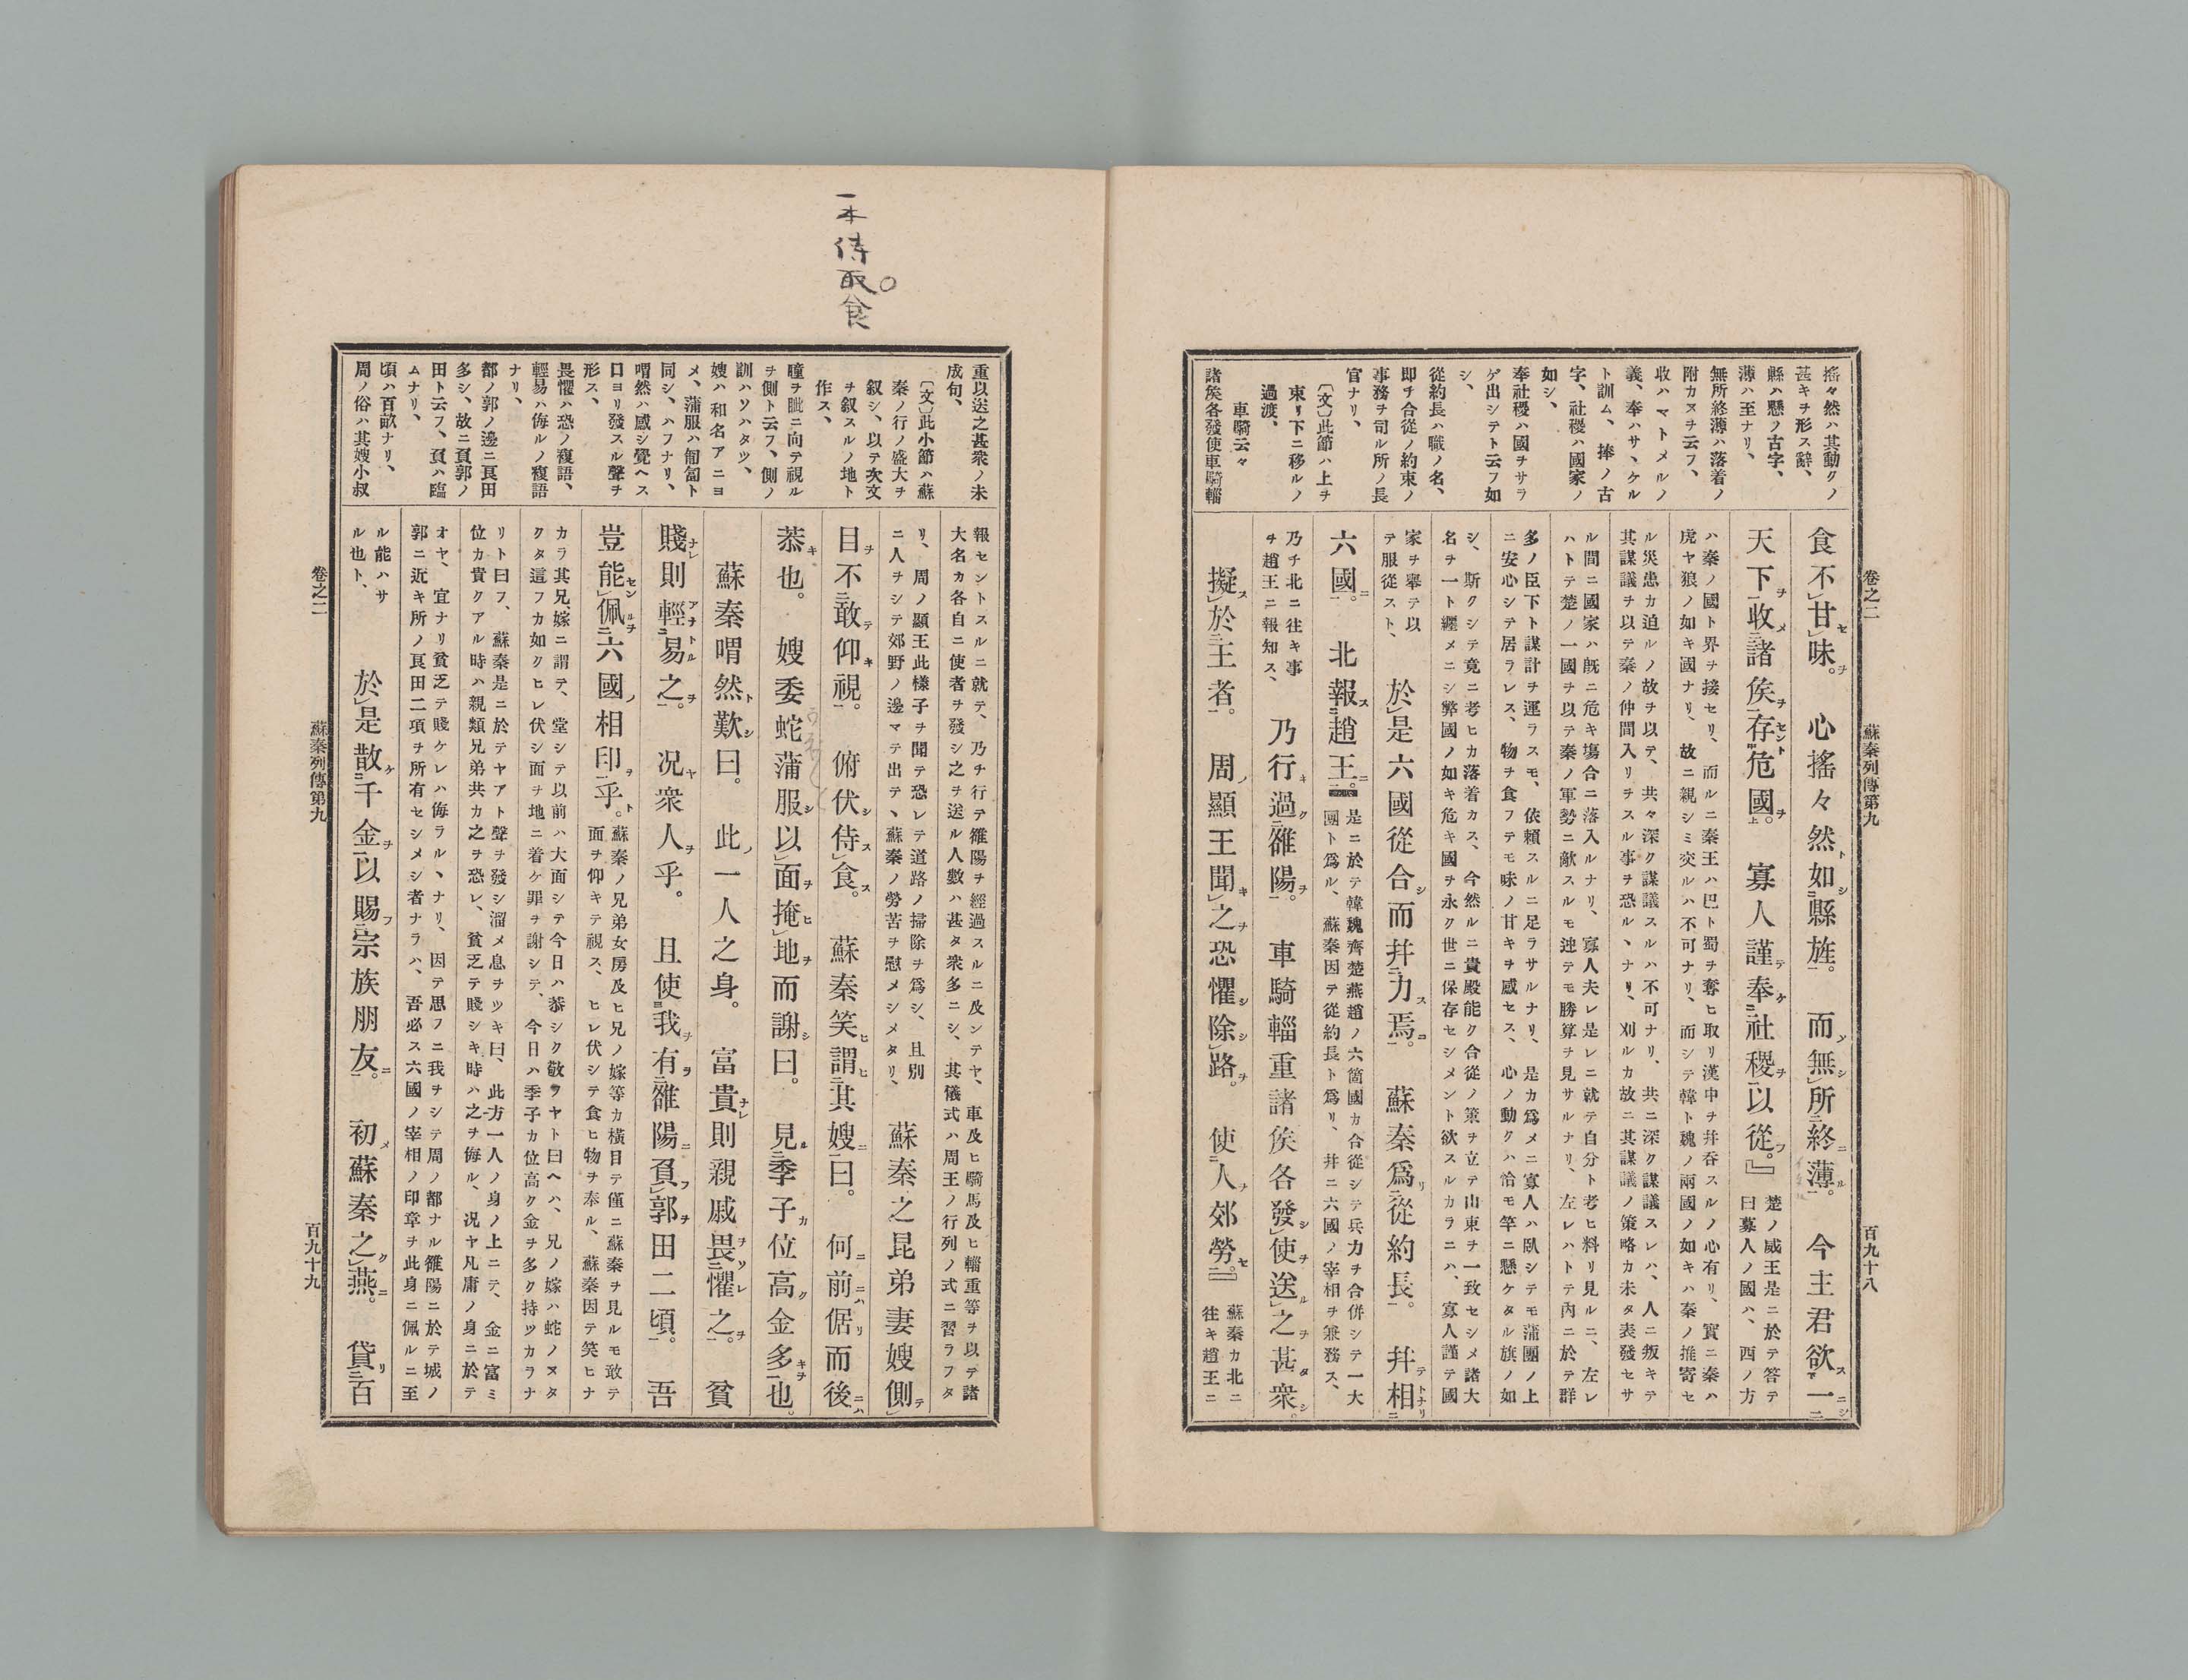 卷之二 蘇秦列傳第九 百九十八
搖々然ハ其動クノ
甚キヲ形ス辭、
縣ハ懸ノ古字、
薄ハ至ナリ、
無所終薄ハ落着ノ
附カヌヲ云フ、
收ハマトメルノ
義、奉ハサヽケル
ト訓ム、捧ノ古
字、社稷ハ國家ノ
如シ、
奉社稷ハ國ヲサラ
ゲ出シテト云フ如
シ、
從約長ハ職ノ名、
即チ合從ノ約束ノ
事務ヲ司ル所ノ長
官ナリ、
〔文〕此節ハ上ヲ
束リ下ニ移ルノ
過渡、
車騎云々
諸矦各發使車騎輜
食不甘味。心搖々然如縣旌。而無所終薄。今主君欲一
天下收諸矦存危國。寡人謹奉社稷以從。』
楚ノ威王是ニ於テ答テ
曰寡人ノ國ハ、西ノ方
ハ秦ノ國ト界ヲ接セリ、而ルニ秦王ハ巴ト蜀ヲ奪ヒ取リ漢中ヲ幷吞スルノ心有リ、實ニ秦ハ
虎ヤ狼ノ如キ國ナリ、故ニ親シミ交ルハ不可ナリ、而シテ韓ト魏ノ兩國ノ如キハ秦ノ推寄セ
ル災患カ迫ルノ故ヲ以テ、共々深ク謀議スルハ不可ナリ、共ニ深ク謀議スレハ、人ニ叛キテ
其謀議ヲ以テ秦ノ仲間入リヲスル事ヲ恐ルヽナリ、刈ルカ故ニ其謀議ノ策略カ未タ表發セサ
ル間ニ國家ハ既ニ危キ塲合ニ落入ルナリ、寡人夫レ是レニ就テ自分ト考ヒ料リ見ルニ、左レ
ハトテ楚ノ一國ヲ以テ秦ノ軍勢ニ敵スルモ迚テモ勝算ヲ見サルナリ、左レハトテ內ニ於テ群
多ノ臣下ト謀計ヲ運ラスモ、依賴スルニ足ラサルナリ、是カ爲メニ寡人ハ臥シテモ蒲團ノ上
ニ安心シテ居ラレス、物ヲ食フテモ味ノ甘キヲ感セス、心ノ動クハ恰モ竿ニ懸ケタル旗ノ如
シ、斯クシテ竟ニ考ヒカ落着カス、今然ルニ貴殿能ク合從ノ策ヲ立テ山東ヲ一致セシメ諸大
名ヲ一ト纒メニシ弊國ノ如キ危キ國ヲ永ク世ニ保存セシメント欲スルカラニハ、寡人謹テ國
家ヲ擧テ以
テ服從スト、
於是六國從合而幷力焉。蘇秦爲從約長。幷相
六國。北報趙王。
是ニ於テ韓魏齊楚燕趙ノ六箇國カ合從シテ兵力ヲ合併シテ一大
團ト爲ル、蘇秦因テ從約長ト爲リ、幷ニ六國ノ宰相ヲ兼務ス、
乃チ北ニ往キ事
ヲ趙王ニ報知ス、
乃行過雒陽。車騎輜重諸矦各發使送之甚衆。
擬於王者。周顯王聞之恐懼除路。使人郊勞。
蘇秦カ北ニ
往キ趙王ニ
一本侍取食
重以送之甚衆ノ未
成句、
〔文〕此小節ハ蘇
秦ノ行ノ盛大ヲ
叙シ、以テ次文
ヲ叙スルノ地ト
作ス、
瞳ヲ眦ニ向テ視ル
ヲ側ト云フ、側ノ
訓ハソハタツ、
嫂ハ和名アニヨ
メ、蒲服ハ匍匐ト
同シ、ハフナリ、
喟然ハ感シ覺ヘス
口ヨリ發スル聲ヲ
形ス、
畏懼ハ恐ノ複語、
輕易ハ侮ルノ複語
ナリ、
都ノ郭ノ邊ニ良田
多シ、故ニ負郭ノ
田ト云フ、負ハ臨
ムナリ、
頃ハ百畝ナリ、
周ノ俗ハ其嫂小叔
報セントスルニ就テ、乃チ行テ雒陽ヲ經過スルニ及ンテヤ、車及ヒ騎馬及ヒ輜重等ヲ以テ諸
大名カ各自ニ使者ヲ發シ之ヲ送ル人數ハ甚タ衆多ニシ、其儀式ハ周王ノ行列ノ式ニ習ラフタ
リ、周ノ顯王此樣子ヲ聞テ恐レテ道路ノ掃除ヲ爲シ、且別
ニ人ヲシテ郊野ノ邊マテ出テヽ蘇秦ノ勞苦ヲ慰メシメタリ、
蘇秦之昆弟妻嫂側
目不敢仰視。俯伏侍食。蘇秦笑謂其嫂曰。何前倨而後
恭也。嫂委蛇蒲服以面掩地而謝曰。見季子位高金多也。
蘇秦喟然歎曰。此一人之身。富貴則親戚畏懼之。貧
賤則輕易之。況衆人乎。且使我有雒陽負郭田二頃。吾
豈能佩六國相印乎。
蘇秦ノ兄弟女房及ヒ兄ノ嫁等カ橫目テ僅ニ蘇秦ヲ見ルモ敢テ
面ヲ仰キテ視ス、ヒレ伏シテ食ヒ物ヲ奉ル、蘇秦因テ笑ヒナ
カラ其兄嫁ニ謂テ、堂シテ以前ハ大面シテ今日ハ恭シク敬ヲヤト曰ヘハ、兄ノ嫁ハ蛇ノヌタ
クタ這フカ如クヒレ伏シ面ヲ地ニ着ケ罪ヲ謝シテ、今日ハ季子カ位高ク金ヲ多ク持ツカラナ
リト曰フ、蘇秦是ニ於テヤアト聲ヲ發シ溜メ息ヲツキ曰、此方一人ノ身ノ上ニテ、金ニ富ミ
位カ貴クアル時ハ親類兄弟共カ之ヲ恐レ、貧乏テ賤シキ時ハ之ヲ侮ル、況ヤ凡庸ノ身ニ於テ
オヤ、宜ナリ貧乏テ賤ケレハ侮ラルヽナリ、因テ思フニ我ヲシテ周ノ都ナル雒陽ニ於テ城ノ
郭ニ近キ所ノ良田二項ヲ所有セシメシ者ナラハ、吾必ス六國ノ宰相ノ印章ヲ此身ニ佩ルニ至
ル能ハサ
ル也ト、
於是散千金以賜宗族朋友。初蘇秦之燕。貸百
卷之二 蘇秦列傳第九 百九十九